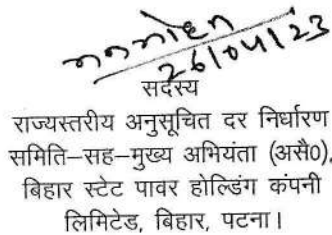 मनमोहन
26/04/23
सदस्य
राज्यस्तरीय अनुसूचित दर निर्धारण
समिति–सह–मुख्य अभियंता (असै0),
बिहार स्टेट पावर होल्डिंग कंपनी
लिमिटेड, बिहार, पटना।